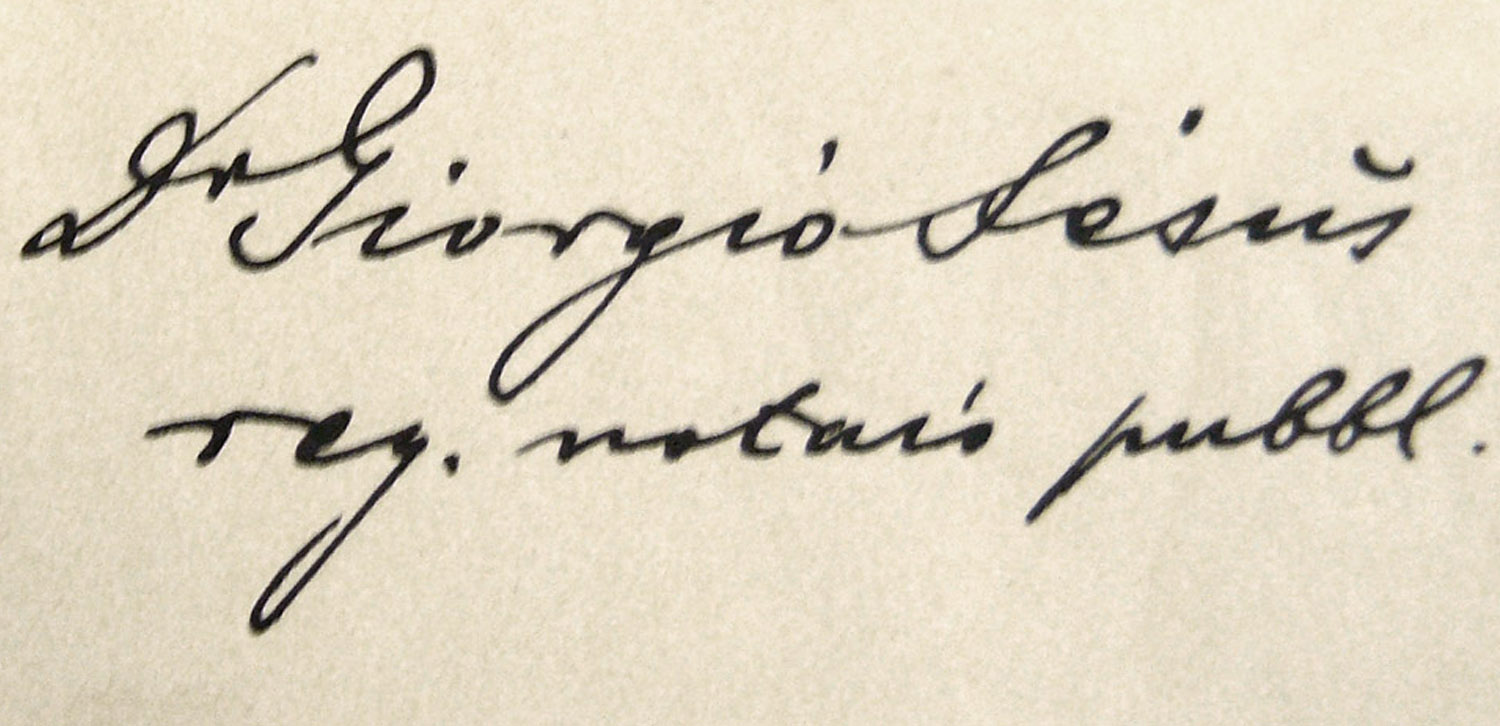 Dr Giorgio
reg. notaio pubbl.